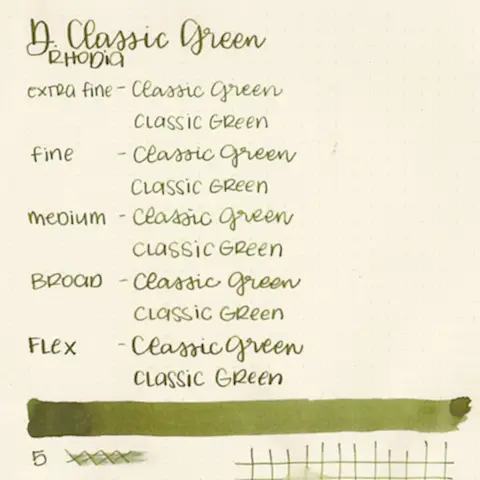 D. Classic Green
RHODIA
extra fine - Classic Green
CLASSIC GREEN
fine - Classic Green
CLASSIC GREEN
medium - Classic Green
CLASSIC GREEN
BROAD - Classic Green
CLASSIC GREEN
FLex - Classic Green
CLASSIC GREEN
5